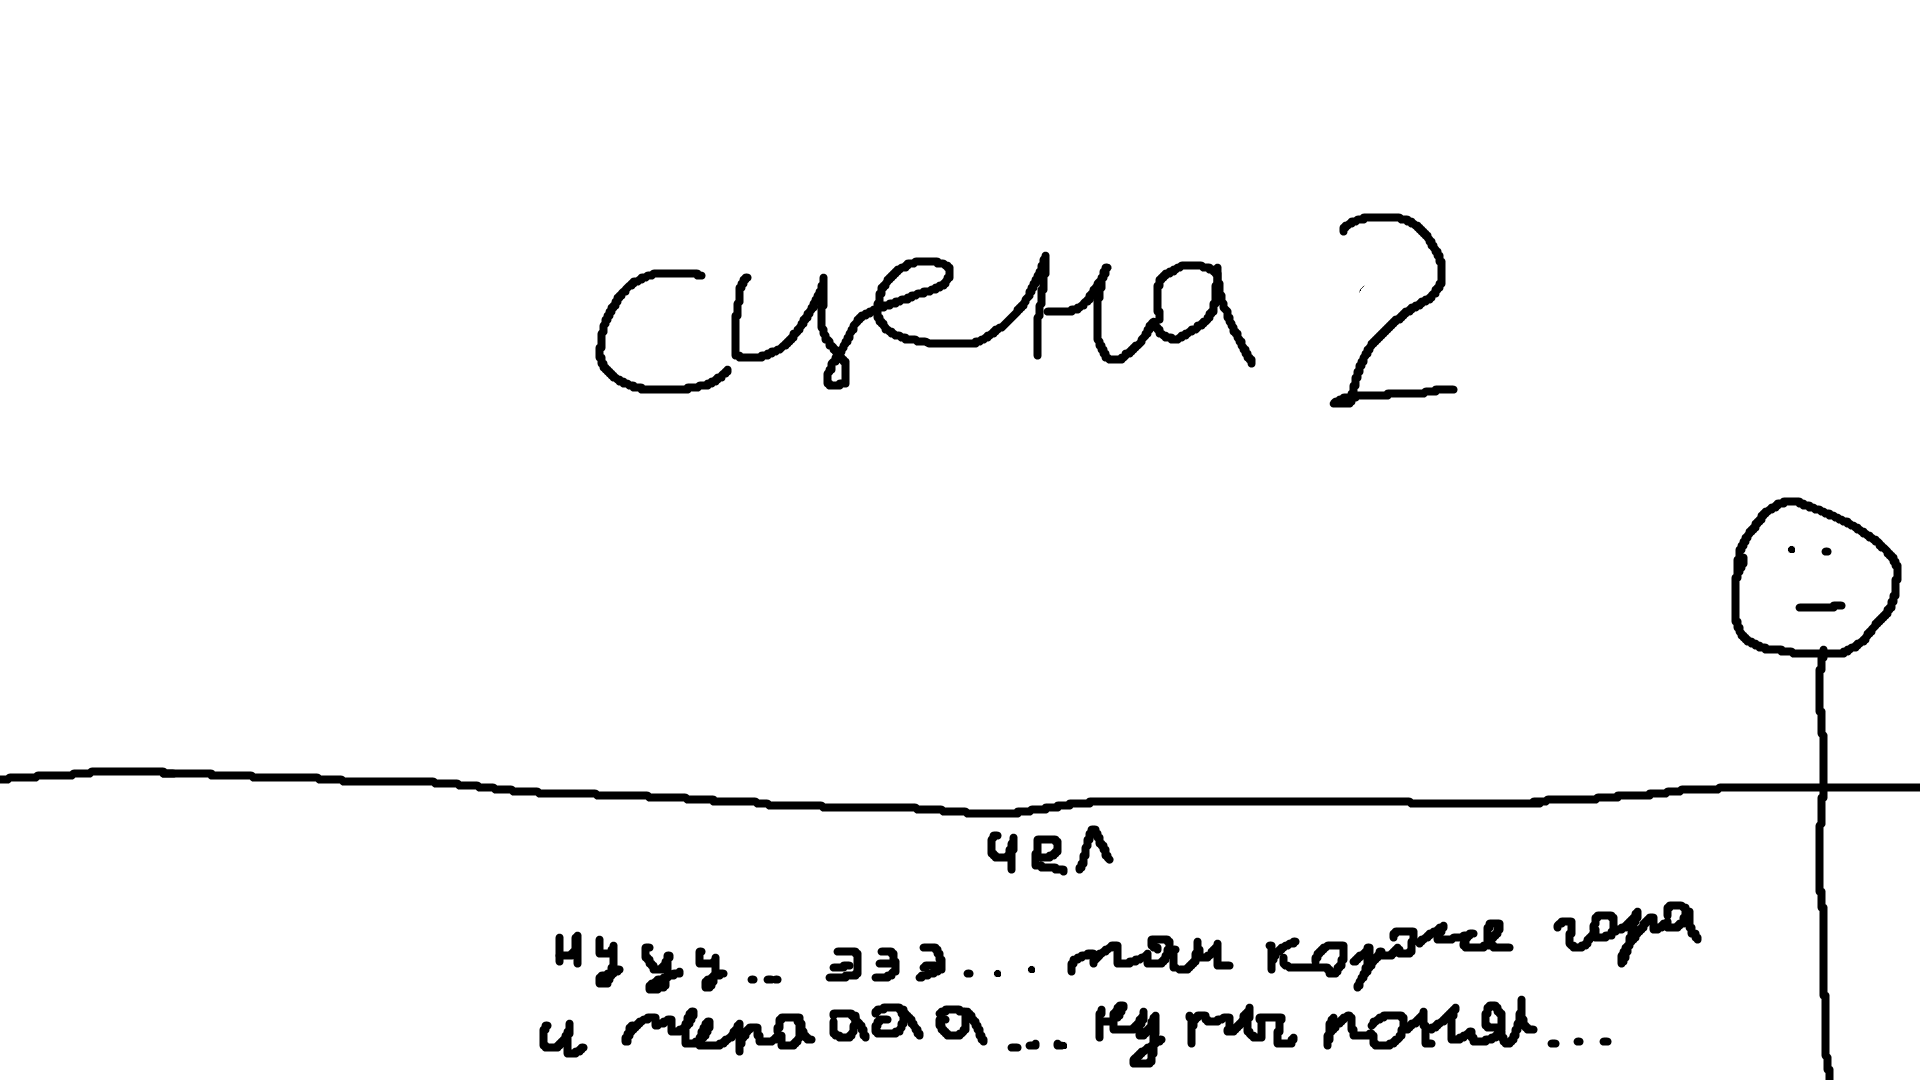 сцена 2
чел
нууу... эээ... там короче гора
и чепааааа... ну ты понял...